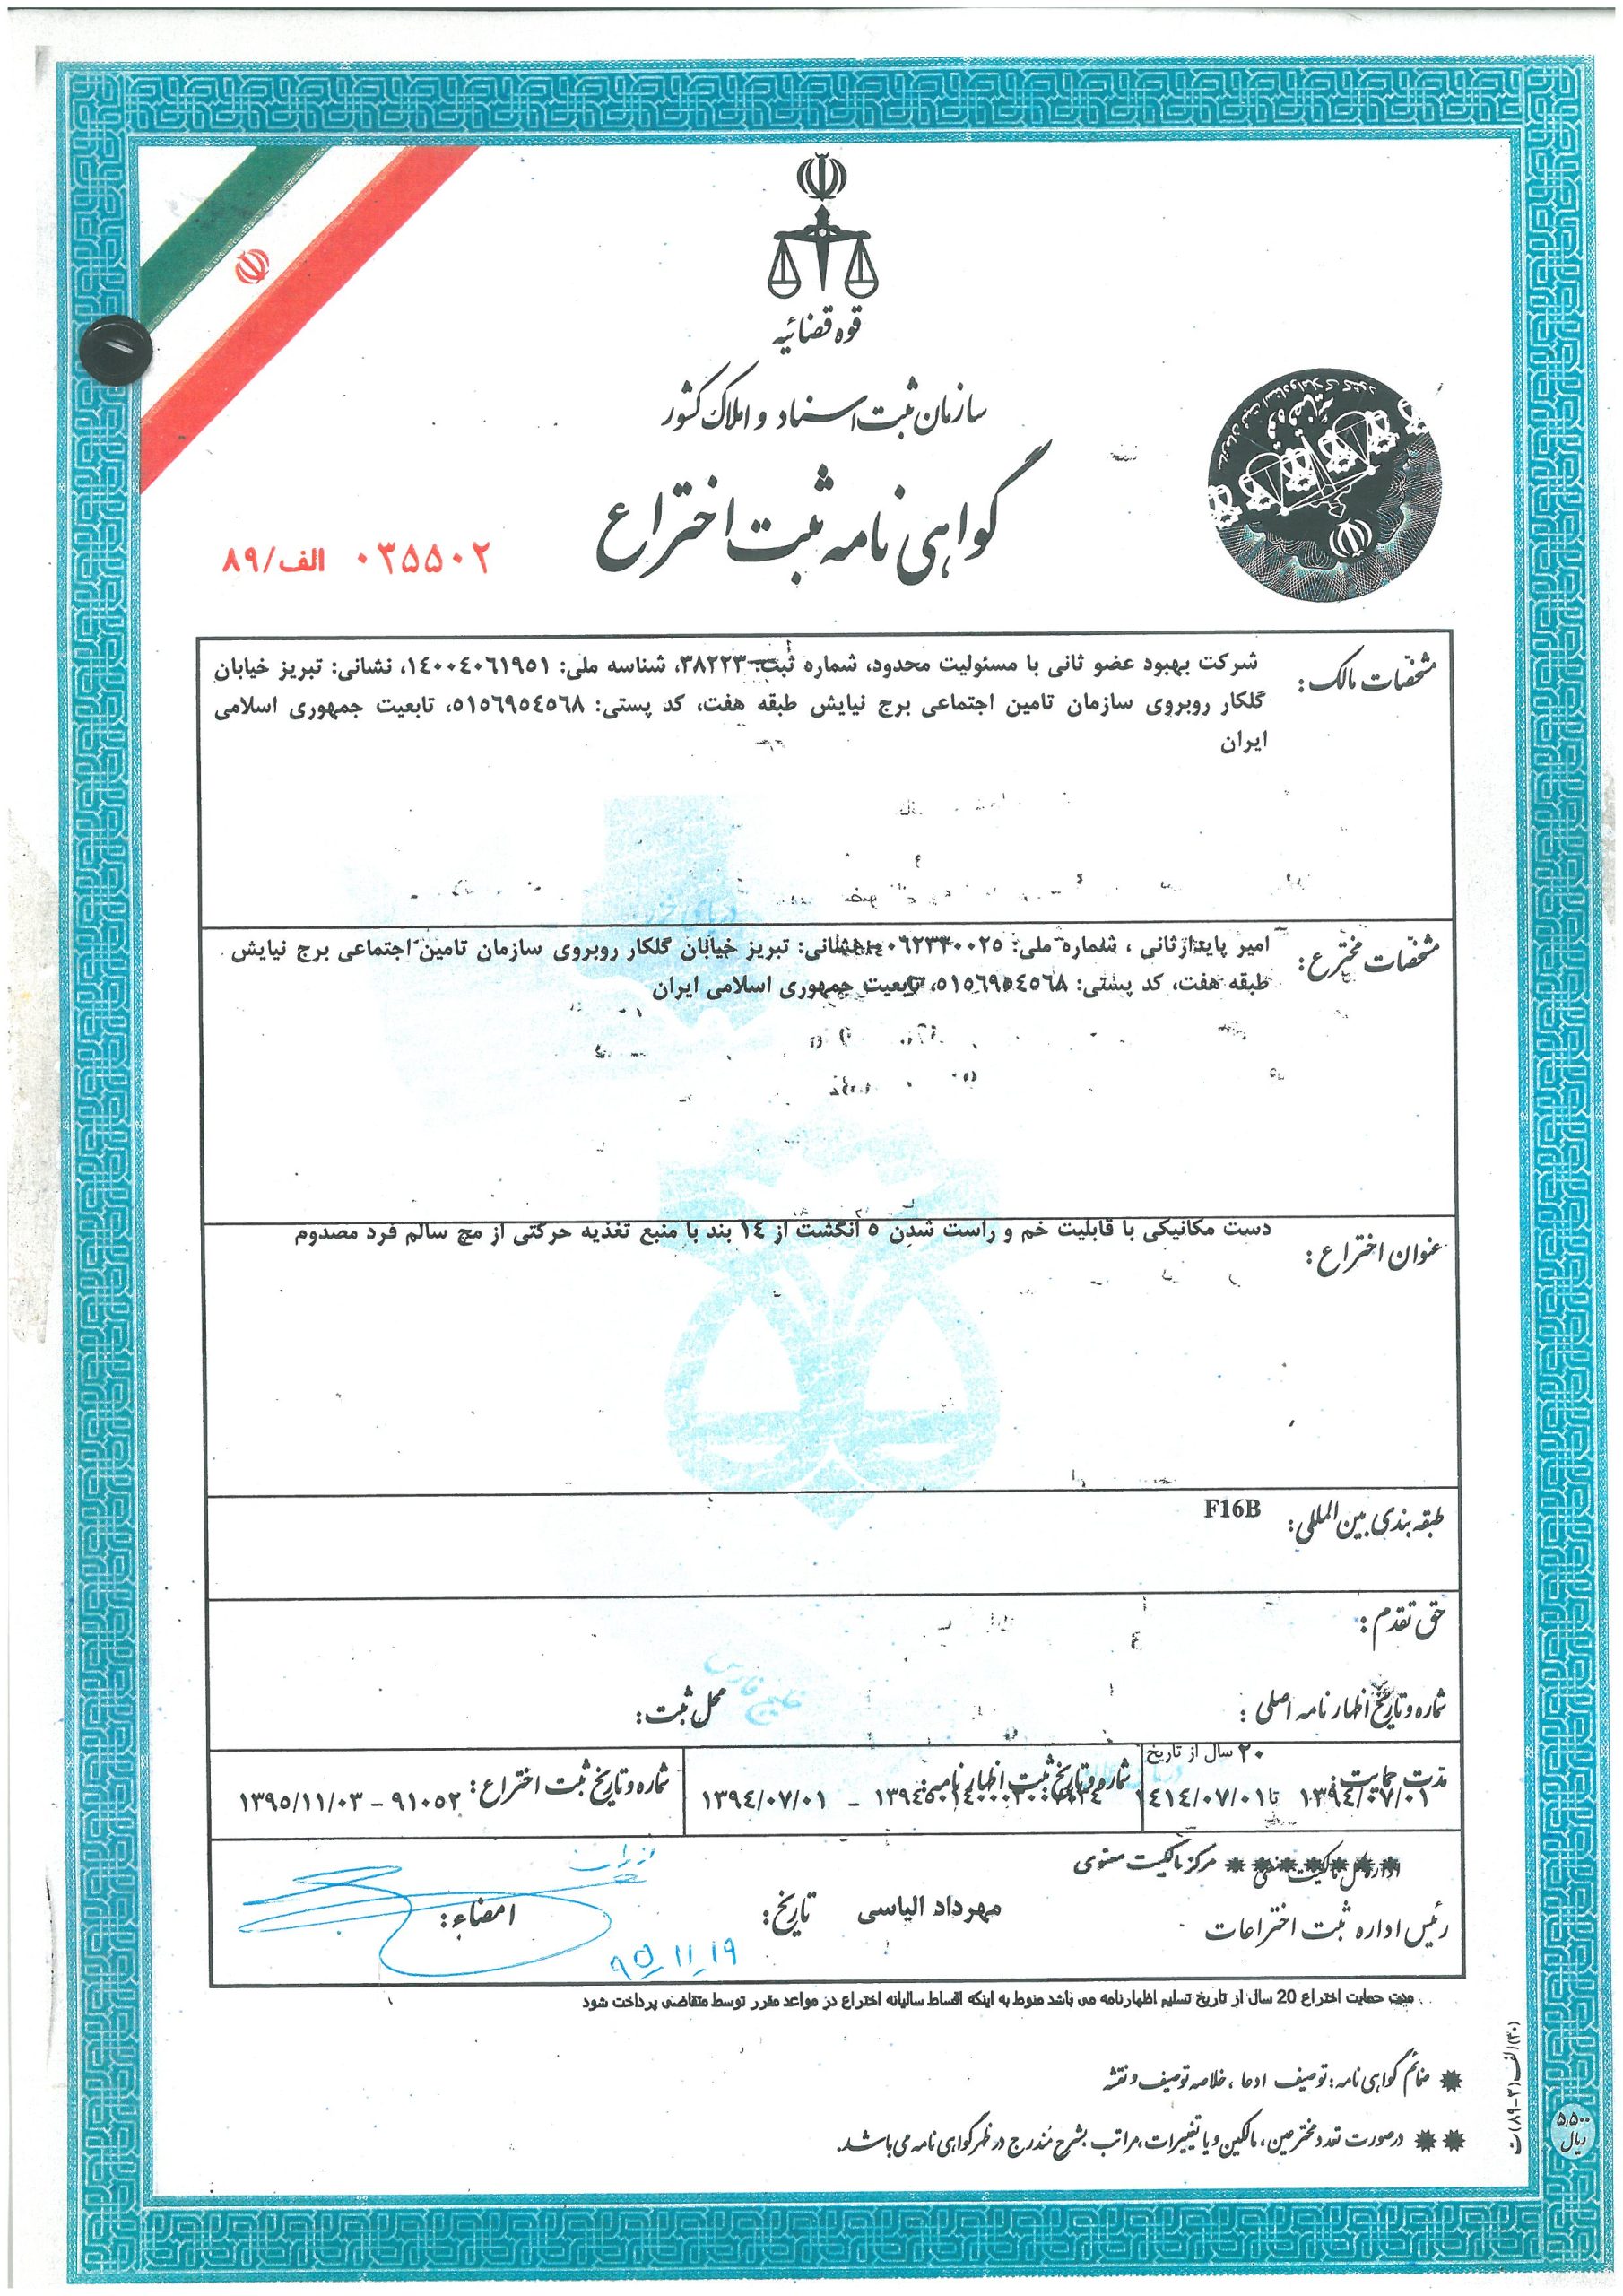 قوه قضائیه
سازمان ثبت اسناد و املاک کشور
گواهی نامه ثبت اختراع
۰۳۵۵۰۲ الف/۸۹
مشخصات مالک:
شرکت بهبود عضو ثانی با مسئولیت محدود، شماره ثبت: ۳۸۲۲۳، شناسه ملی: ۱۴۰۰۴۰۶۱۹۵۱، نشانی: تبریز خیابان
گلکار روبروی سازمان تامین اجتماعی برج نیایش طبقه هفت، کد پستی: ۵۱۵۶۹۵۴۵۶۸، تابعیت جمهوری اسلامی
ایران
مشخصات مخترع:
امیر پایدارثانی ، شماره ملی: نشانی: تبریز خیابان گلکار روبروی سازمان تامین اجتماعی برج نیایش
طبقه هفت، کد پستی: ۵۱۵۶۹۵۴۵۶۸، تابعیت جمهوری اسلامی ایران
عنوان اختراع:
دست مکانیکی با قابلیت خم و راست شدن ۵ انگشت از ۱۴ بند با منبع تغذیه حرکتی از مچ سالم فرد مصدوم
طبقه بندی بین المللی:
F16B
حق تقدم:
شماره و تاریخ اظهار نامه اصلی:
محل ثبت:
مدت حمایت:
۲۰ سال از تاریخ
۱۳۹۴/۰۷/۰۱ تا ۱۴۱۴/۰۷/۰۱
شماره و تاریخ ثبت اظهار نامه:
- ۱۳۹۴/۰۷/۰۱
شماره و تاریخ ثبت اختراع:
۹۱۰۵۲ - ۱۳۹۵/۱۱/۰۳
اداره کل مالکیت صنعتی مرکز مالکیت معنوی
رئیس اداره ثبت اختراعات
مهرداد الیاسی
تاریخ:
۹۵-۱۱-۱۹
امضاء:
مدت حمایت اختراع 20 سال از تاریخ تسلیم اظهارنامه می باشد منوط به اینکه اقساط سالیانه اختراع در مواعد مقرر توسط متقاضی پرداخت شود
ضمائم گواهی نامه: توصیف ادعا، خلاصه توصیف و نقشه
درصورت تعدد مخترعین، مالکین و یا تغییرات، مراتب بشرح مندرج در ظهر گواهی نامه می باشد.
۵,۵۰۰
ریال